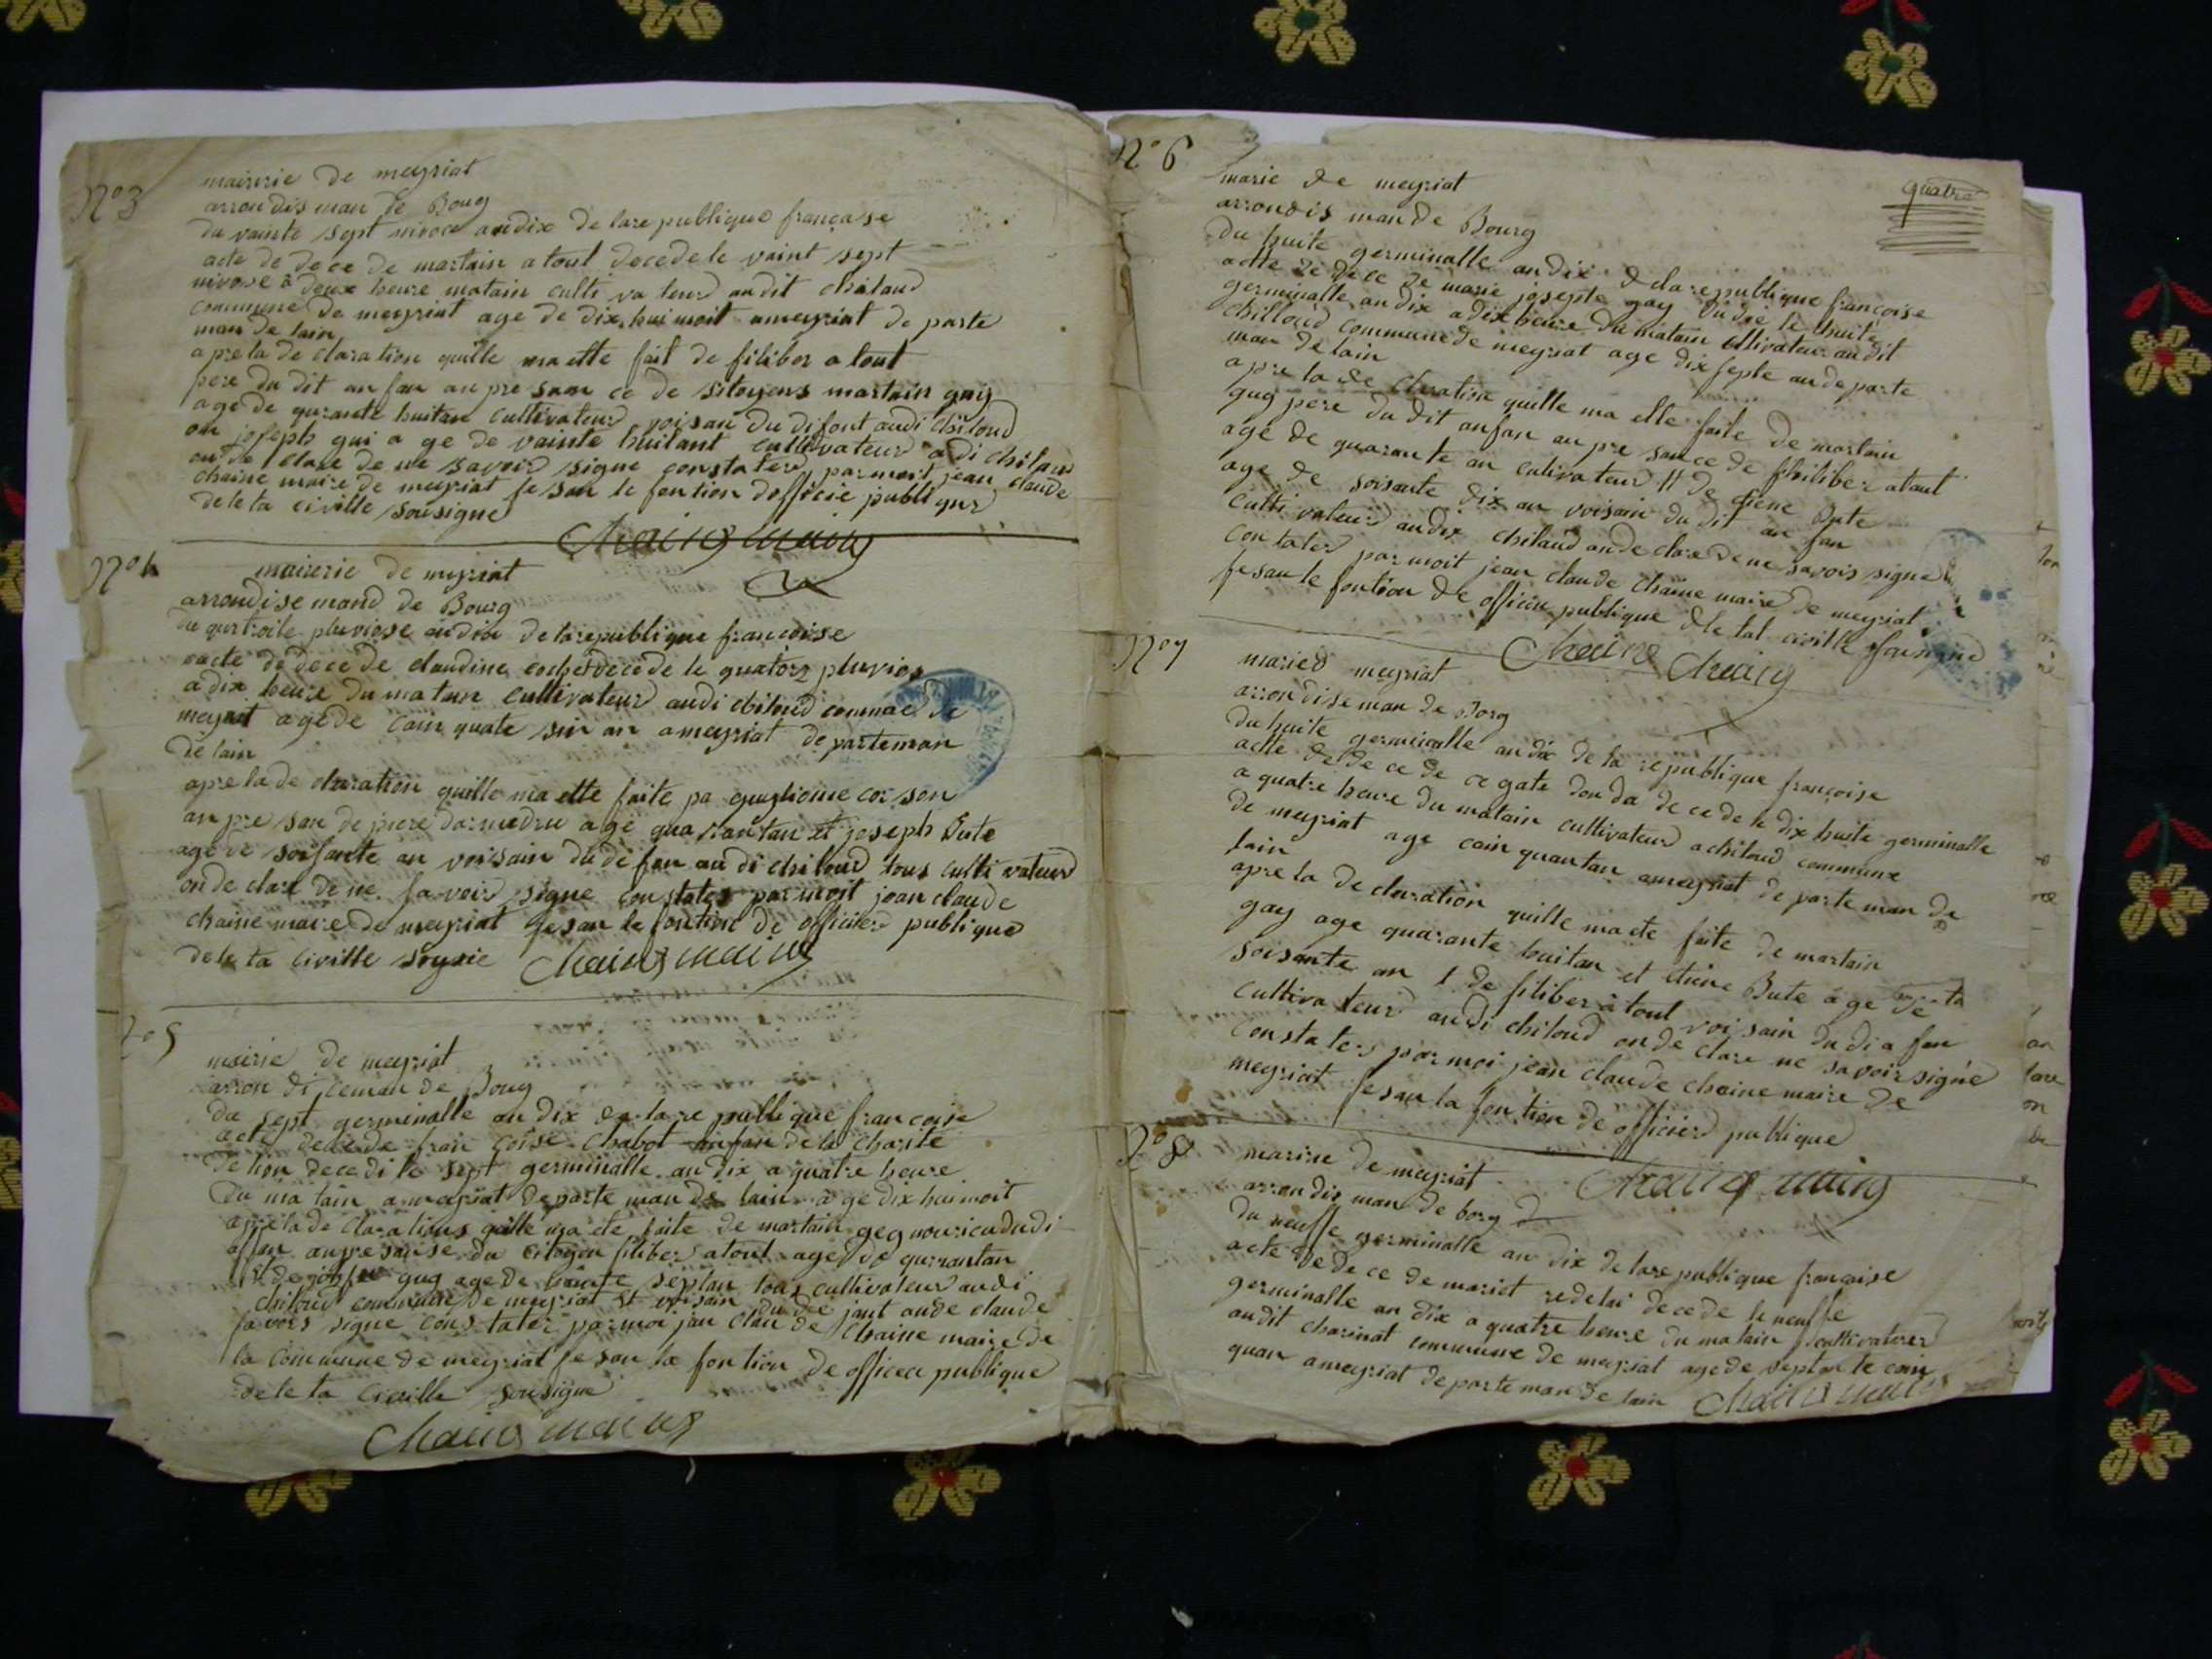 N° 3
mairerie de meyriat
arrondis man de Boug
du vainte sept nivoce andix de lare publique françase
acte de dece de martain atout decedele vaint sept
nivose à deux heure matain culti va teur au dit chilaud
commune de meyriat age de dix hui moit ameyriat de parte
man de lain
apre la de claration quille ma ette fait de filiber a tout
pere du dit an fan au pre sam ce de sitoyens martain gay
age de quranté huitan cultivateur voisan du difont audi Chiloud
on joseph gui a ge de vainte huitant cultivateur a di chilaud
on de clare de ne savoir signe constater par moit jean claude
chaine maire de meyriat fe san le fontion dofficié publique
dele ta civille sousigne
Chaine maire
N° 4
mairerie de meyriat
arrondisemand de Bourg
du pluviose andix de larepublique françoise
acte de decede claudine decede le quatorz pluvios
a dix heure du matain cultivateur audi chiloud commae de
meyriat age de cain quate sin an ameyriat departeman
de lain
apre la de claration quille ma ette faite pa guglieme cor son
an pre san de piere darmedru age quarantan et joseph Bute
age de soisante an voisain du de fan au di chiloud tous cultivateur
onde clare de ne savoir signe constater par moit jean claude
chaine maire de meyriat fe san le fontion de officier publique
dele ta civille
Chaine maire
N° 5
mairie de meyriat
arron di ceman de Boug
du sept germinalle an dix de lare publique francoise
acte decede fran coise Chabot anfan de la charite
de lion decedi le sept germinalle an dix a quatre heure
du ma tain a meyriat departe man de lain age dix hui moit
apre la de clarations quille ma ete faite de martain geg nouricududi
anfan aupresanse du citoyen filiber atout age de qurantan
et de gug age de vainte septan tous cultivateur audi
chiloud commune de meyriat et voisain du die jant onde claude
savoir signe cons tater parmoi jan clau de Chaine maire de
la commune de meyriat fe san la fontion de officier publique
dele ta civille sousigne
Chaine maire
N° 6
quatre
marie de meyriat
arrondis mande Bourg
du huite germinalle andix de larepublique francoise
acte de dece de marie josepte gay dudie le huite
germinalle an dix a dix heure du matain cltivateur au dit
chilloud commune de meyriat age dix septe an de parte
man de lain
apre la de claration quille ma ette faite de martain
gug pere du dit anfan au pre sance de philiber atout
age de quarante an cultivateur et de etiene Bute
age de soisante dix an voisain du dit an fan
cultivateur audix chilaud onde clare de ne savoir signe
contater par moit jean claude chaine maire de meyriat
fesan le fontion de officie publique dele tat civille sousigne
Chaine Chaine
N° 7
marie d meyriat
arrondiseman de Borg
du huite germinalle an dix de la republique françoise
acte de de ce de agate don da de ce de le dix huite germinalle
a quatre heure du matain cultivateur achiloud commune
de meyriat age cain quantan ameyriat de parte man de
lain
apre la de claration quille ma ete faite de martain
gay age quarante huitan et etiene Bute age de
soisante an et de filiber à tout voisain du di a fan
cultiva teur audi chiloud on de clare ne savoir signé
constater par moi jean claude chaine maire de
meyriat fe san la fontion de officier publique
Chaine maire
N° 8
marire de meyriat
arrondis man de borg
du neuffe germinalle an dix de lare publique françaïse
acte de de ce de mariet redelai decede le neuffe
germinalle an dix a quatre heure du matain cultivateur
au dit charinat commune de meyriat age de septante cain
quan ameyriat departe man de lain
Chaine maire